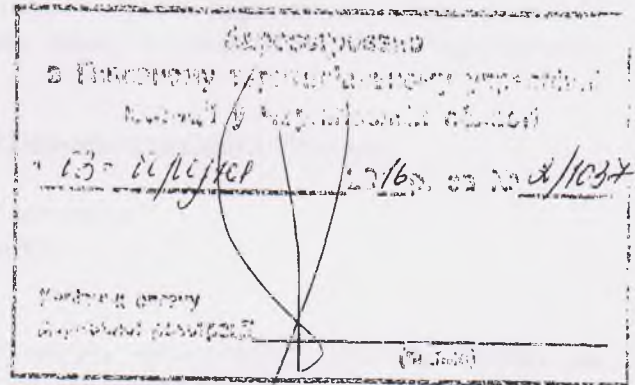 Зареєстровано
в Головному територіальному управлінні
юстиції у області
" 13 " 2016р. за № 2/1037
Керівник органу
державної реєстрації
(підпис)